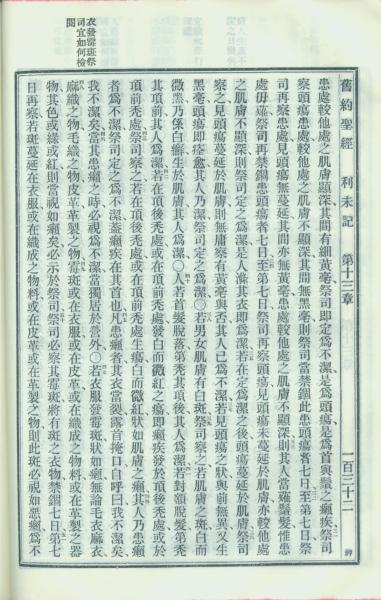 舊約聖經 利未記 第十三章 一百三十二
衣發霉斑祭
司宜如何檢
閱
患處較他處之肌膚顯深其間有細黃毫祭司即定爲不潔是爲頭瘍是爲首與鬚之癩疾祭司
察頭瘍患處較他處之肌膚不顯深其間無黑毫則祭司當禁錮此患頭瘍者七日至第七日祭
司再察患處見頭瘍無蔓延其間亦無黃毫患處較他處之肌膚不顯深則其人當薙鬚髮惟患
處毋薙祭司再禁錮患頭瘍者七日至第七日祭司再察頭瘍見頭瘍未蔓延於肌膚亦較他處
之肌膚不顯深則祭司定之爲潔是人滌其衣即爲潔若在定爲潔之後頭瘍蔓延於肌膚祭司
察之見頭瘍蔓延於肌膚則無庸察有黃毫與否其人已爲不潔若見頭瘍之狀與前無異又生
黑毫頭瘍即痊愈其人乃潔祭司定爲潔〇若男女肌膚有白斑祭司察之若肌膚之斑白而
微黑乃係白癬生於肌膚其人爲潔〇人若首髮脫落第禿其項後其人爲潔若對額脫髮第禿
其頂前其人爲潔若在項後禿處或在頂前禿處發白而微紅之瘍即癩疾發於項後禿處或於
頂前禿處祭司察之若在項後禿處或在頂前禿處生瘍白而微紅狀如肌膚之癩其人乃患癩
者爲不潔祭司定之爲不潔蓋癩疾在其首也凡患癩者其衣當裂露首掩口自呼曰我不潔矣
我不潔矣當其患癩之時必視爲不潔當獨居於營外〇若衣服發霉斑狀如癩無論毛衣麻衣
麻織之物毛織之物皮革革製之物霉斑或在衣服或在皮革或在織成之物料或在革製之器
物其色或綠或紅則當視如癩矣必示於祭司祭司必察其霉斑將有斑之衣物禁錮七日第七
日再察若斑蔓延在衣服或在織成之物料或在皮革或在革製之物則此斑必視如惡癩爲不